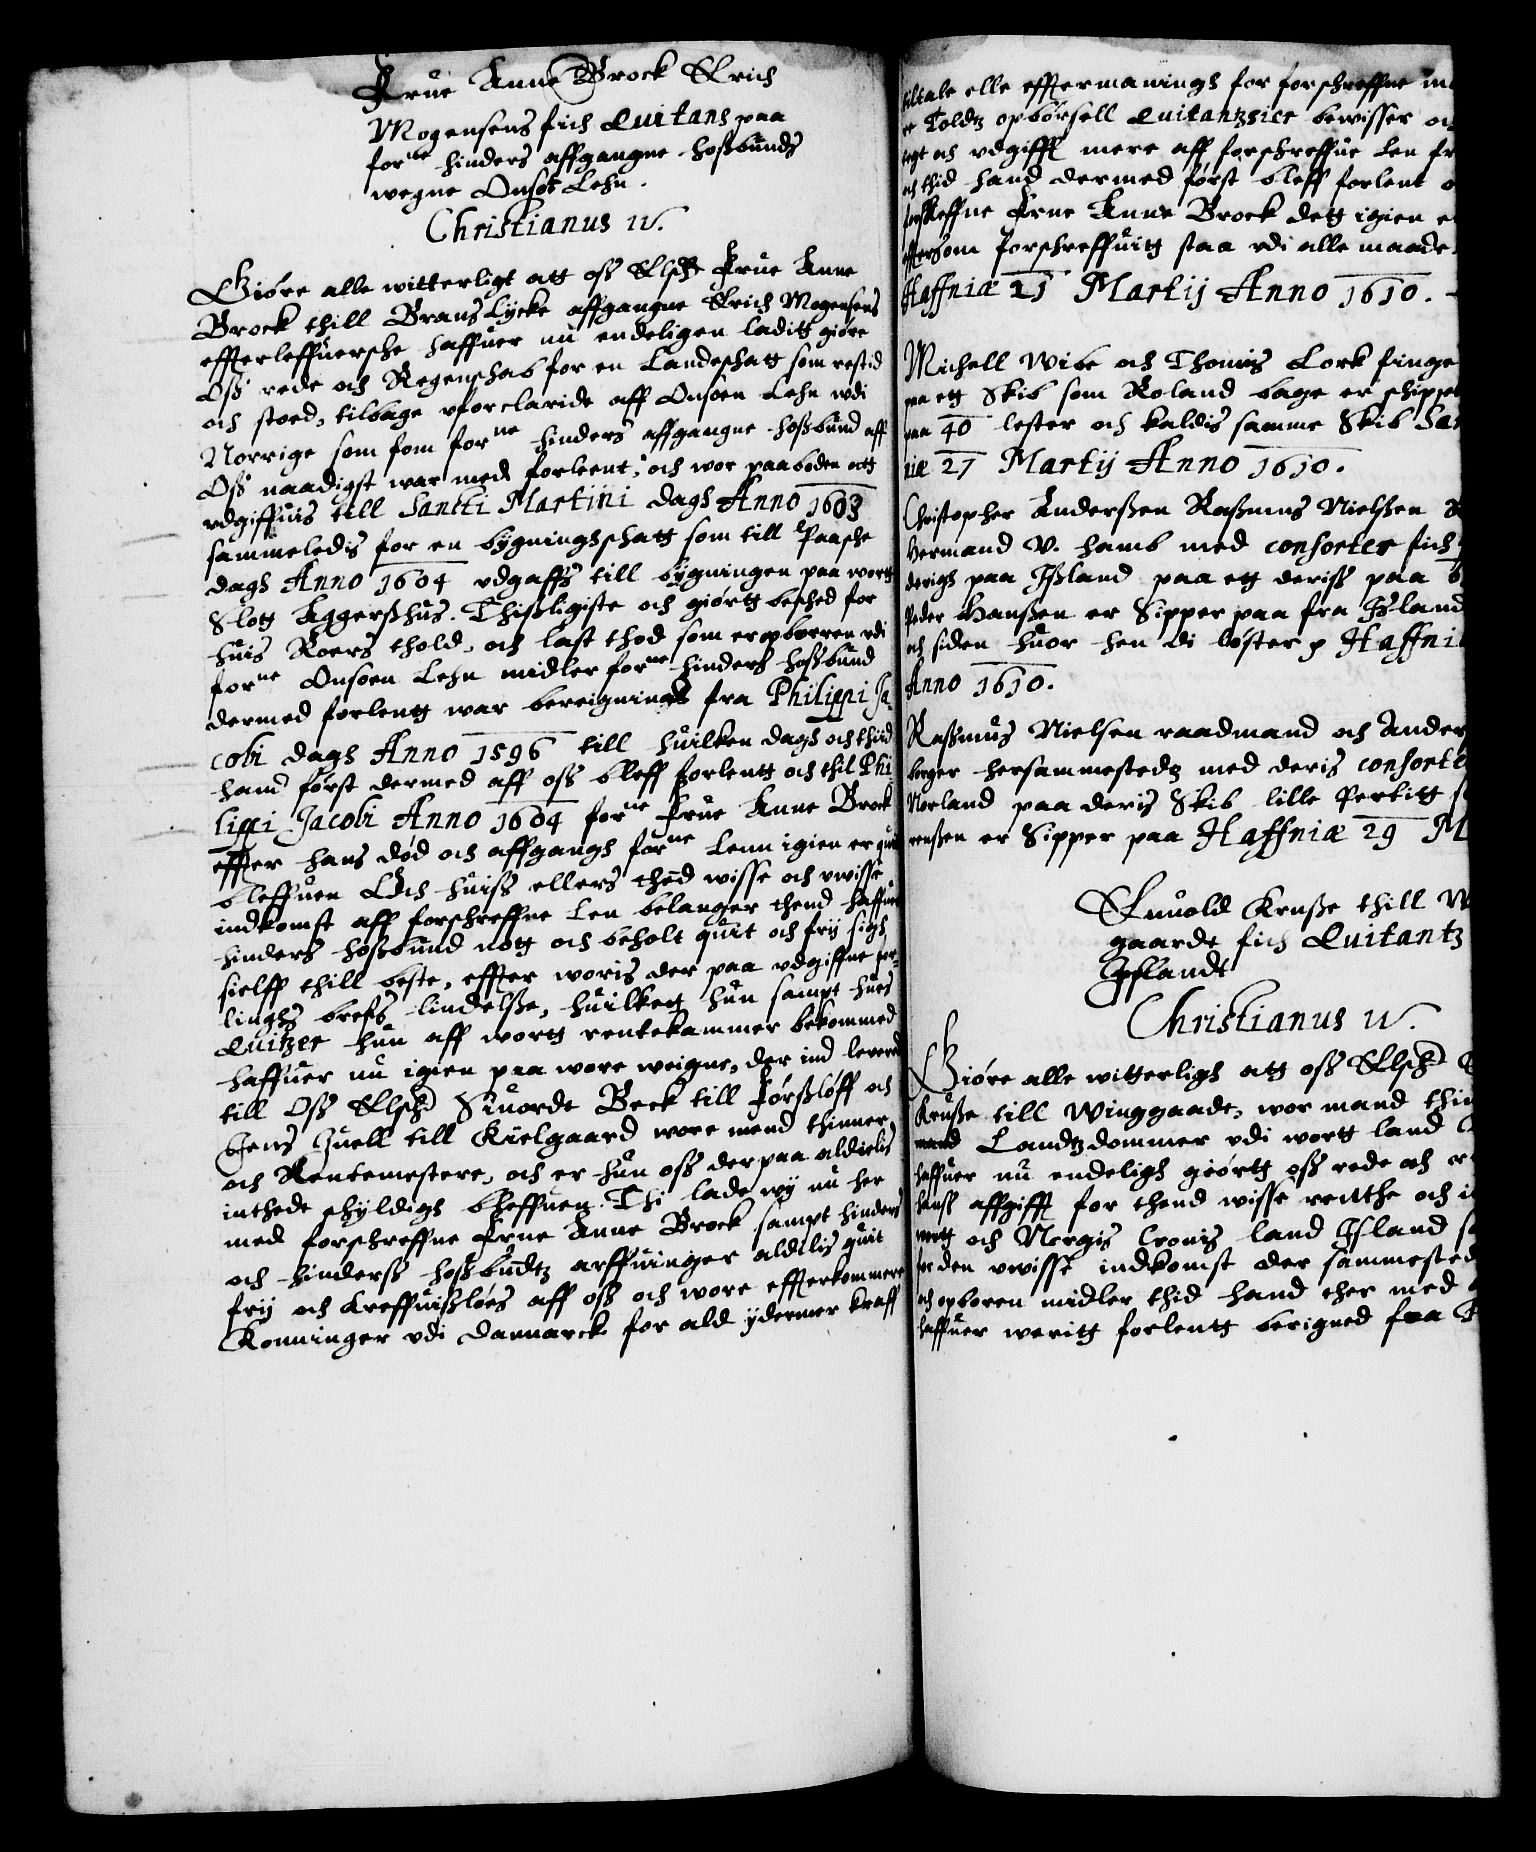 Frue Anne Brock Erich
Mogensens fich Quitans paa
forne hinders affgangne hoßbunds
wegne Onsøe Lehn.
Christianus 4.
Giøre alle witterligt att oss Elsche Frue Anne
Brock thill Brans Lycke affgangne Erich Mogensens
effterleffuersche haffuer nu endeligen laditt giøre
Oss rede och Regenschab for en Landeschatt som restid
och stoed, tilbage vforclaride aff Onsøen Lehn vdi
Norrige som fom forne hinders affgangne hoßbund aff
Oss naadigst war med forleent, och wor paaboden att
vdgiffuis till Sancti Martini dagh Anno 1603
sammeledis for en bygningsschatt som till Paasche
dagh Anno 1604 vdgaffs till bygningen paa wortt
Slott Aggershus. Thißligiste och giørtt besched for
huis Roers thold, och last thod som er opborren vdi
forne Onsøen Lehn midler forne hinders hoßbund
dermed forlentt war bereignings fra Philippi Ja¬
cobi dagh Anno 1596 till huilken dagh och thiid
hand først dermed aff oss bleff forlentt och thil Phi¬
lippi Jacobi Anno 1604 forne Frue Anne Brock
effter hans død och affgangh forne Lenn igien er quit
bleffuen Och huiss ellers thend wisse och vwisse
indkomst aff forschreffne Len belanger thend haffuer
hinders hoßbund nøtt och beholt quit och frij sigh
sielff thill beste, effter woris der paa vdgiffne for¬
linghs brefs lindelße, huilkett hun sampt hues
Quitzer hun aff wortt rentekammer bekommed
haffuer nu igien paa wore weigne, der ind levered
till Oss Elsche Siuorde Beck till Førßløff och
Jens Juell till Kielgaard wore mend thinner
och Rentemestere, och er hun oss der paa aldielis
inthede schyldigh bleffuen. Thi lade wij nu her
med forschreffne Frue Anne Brock sampt hinders
och hinderss hoßbundtz arffuinger aldelis quit
frij och kreffuißløes aff oss och wore effterkommere
Konninger vdi Dannarck for ald ydermer kraff
tiltale elle efftermanings for forschreffne
re Toldtz opbørsell Quitantzsier bewisser
och vdgifft mere aff forschreffne Len fr
och thid hand dermed først bleff forlent
forskreffne Frue Anne Brock dett igien
effterSom forschreffuitt staa vdi alle maade
Haffniæ 21 Martij Anno 1610.
Michell Wibe och Thomis Lork finge
paa ett Skib som Roland bage er schipper
paa 40 lester och kaldis samme Skib
niæ 27 Martij Anno 1610.
Christopher Anderßen Raßmus Nielßen
Hermand V. hamb med consorter fich
derigh paa Ißland paa ett deriss paa
Peder Hanßen er Sipper paa fra Ißland
och siden huor hen di løster p Haffni
Anno 1610.
Raßmus Nielsen raadmand och Ander
borger hersammestedtz med deris consorte
Norland paa deris Skib lille Fertitt
renßen er Sipper paa Haffniæ 29 M
Enuold Kruße thill W
gaarde fich Quitantz
Ißlandt
Christianus 4.
Giøre alle witterligh att oss Elsche
Kruße till Winggaade, wor mand thi
Landtzdommer vdi wortt land
haffuer nu endeligh giørtt oss rede och
hanß affgifft for thend wisse rentthe och
wortt och Norgis Cronis land Ißland
for den vwisse indkomst der sammested
och opboren midler thid hand ther med
haffuer weritt forlentt berigned fra